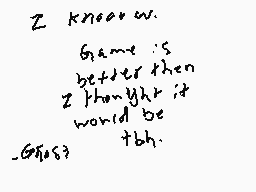 I knooow.
Game is
better then
I thought it
would be
tbh.